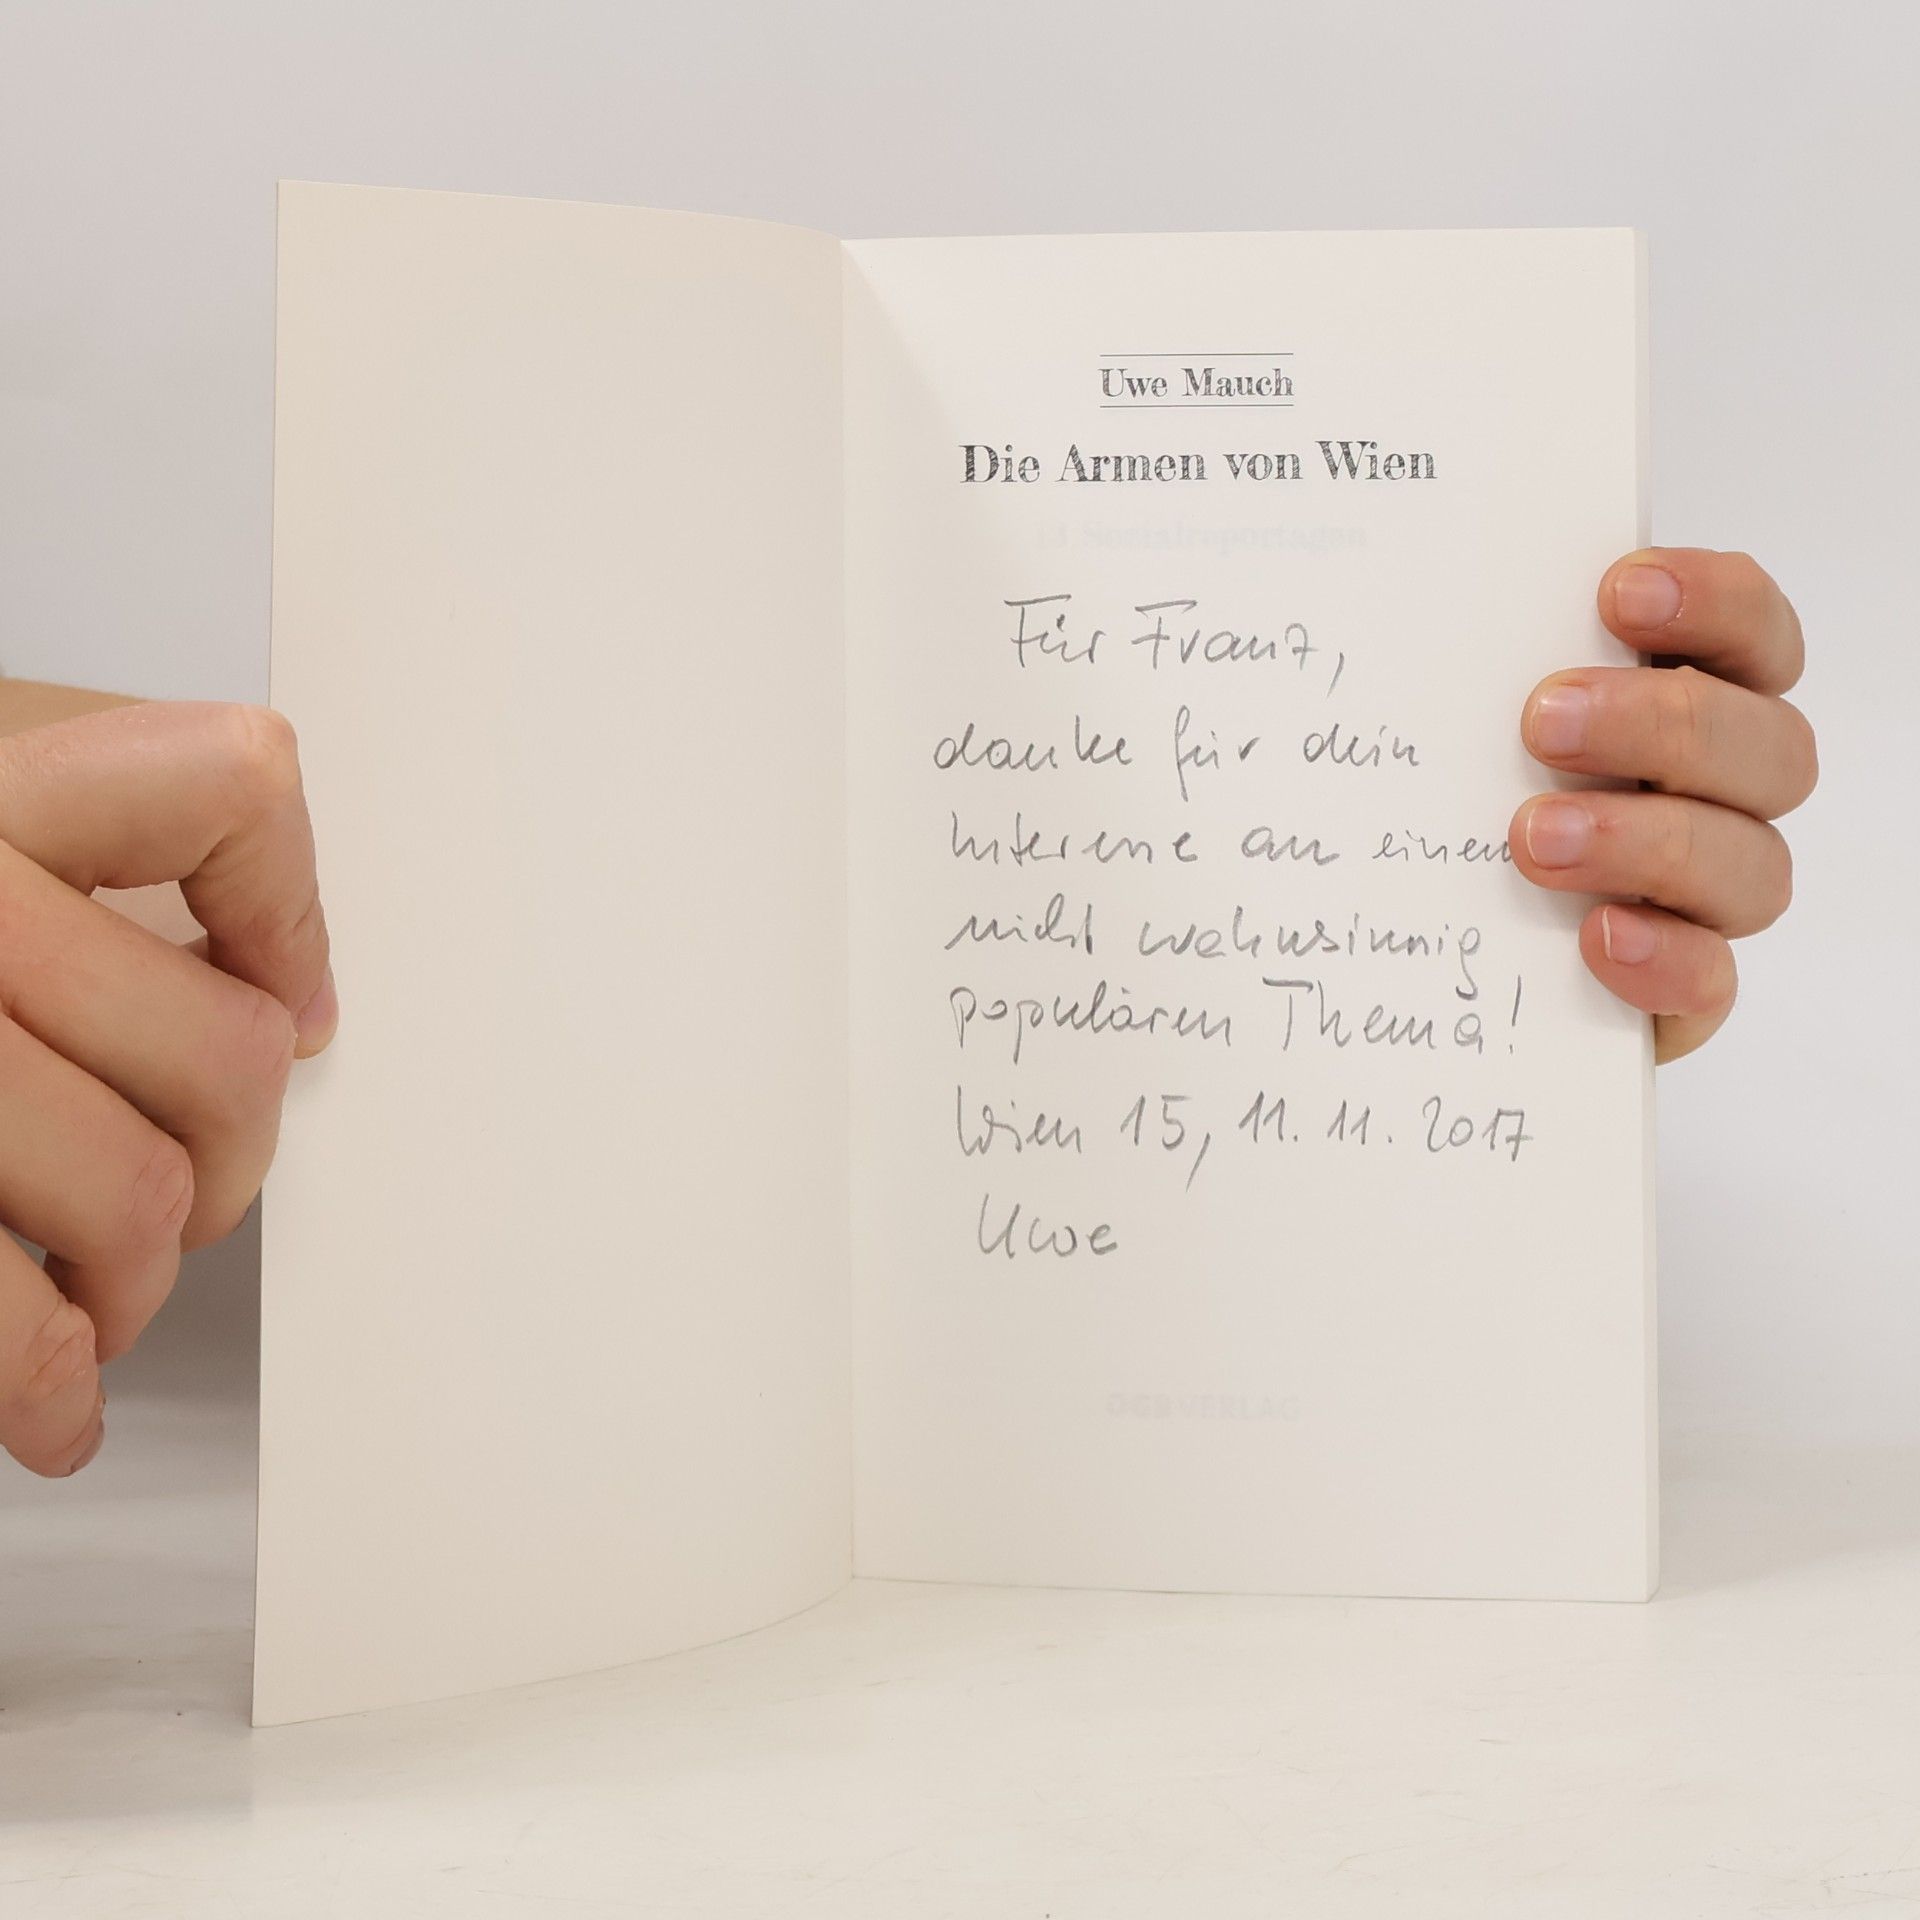 Uwe Mauch
Die Armen von Wien
13 Sozialreportagen
Für Franz,
danke für dein
Interesse an einem
nicht wahnsinnig
populären Thema!
Wien 15, 11. 11. 2017
Uwe
ÖGB VERLAG